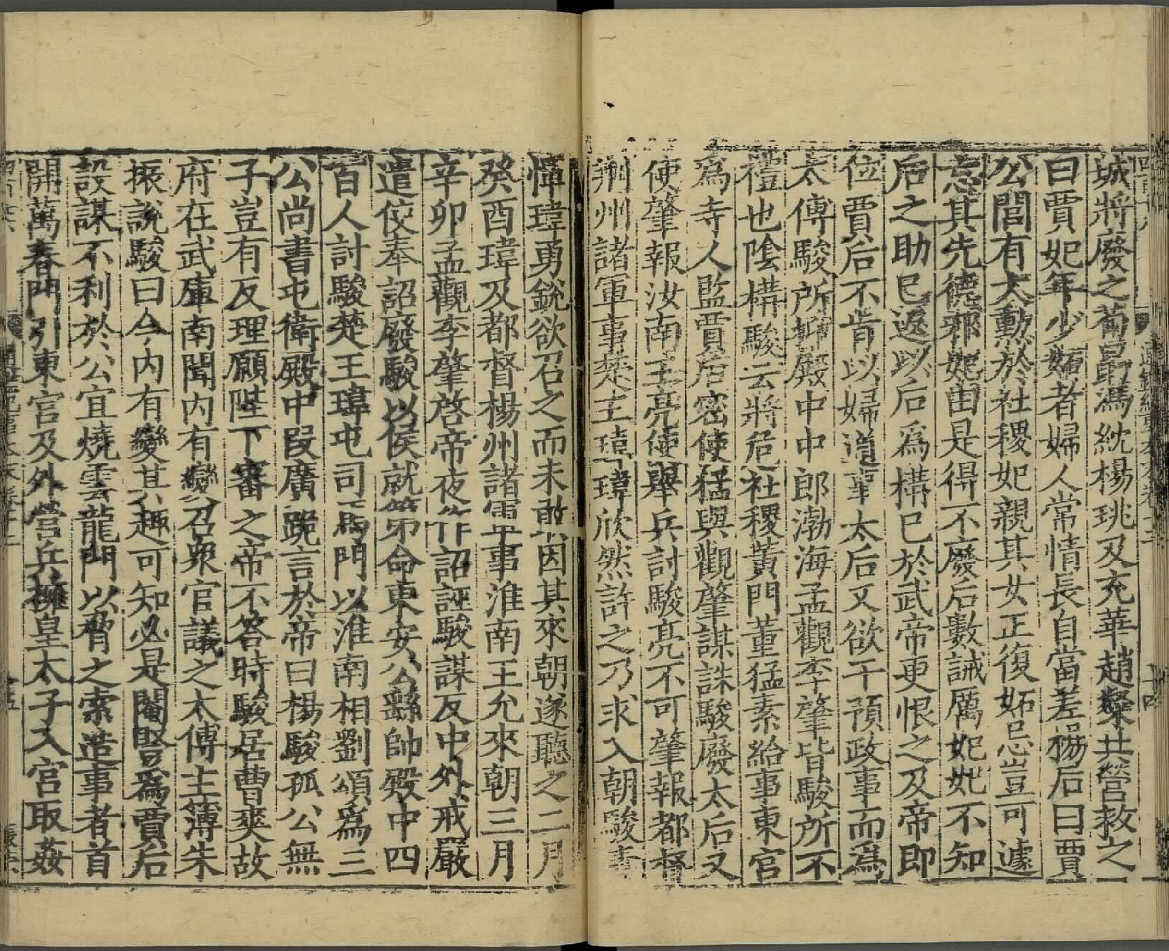 城將廢之荀勖馮紞楊珧及充華趙粲共營救之
曰賈妃年少妬者婦人常情長自當差楊后曰賈
公閭有大勳於社稷妃親其女正復妬忌豈可遽
忘其先德邪妃由是得不廢后數誡厲妃妃不知
后之助己返以后爲構己於武帝更恨之及帝即
位賈后不肯以婦道事太后又欲干預政事而爲
太傅駿所抑殿中中郎渤海孟觀李肇皆駿所不
禮也陰構駿云將危社稷黃門董猛素給事東宮
爲寺人監賈后密使猛與觀肇謀誅駿廢太后又
使肇報汝南王亮使舉兵討駿亮不可肇報都督
荆州諸軍事楚王瑋瑋欣然許之乃求入朝駿素
憚瑋勇銳欲召之而未敢因其來朝遂聽之二月
癸酉瑋及都督楊州諸軍事淮南王允來朝三月
辛卯孟觀李肇啓帝夜作詔誣駿謀反中外戒嚴
遣使奉詔廢駿以侯就第命東安公繇帥殿中四
百人討駿楚王瑋屯司馬門以淮南相劉頌爲三
公尚書屯衛殿中段廣跪言於帝曰楊駿孤公無
子豈有反理願陛下審之帝不答時駿居曹爽故
府在武庫南聞内有變召衆官議之太傅主簿朱
振說駿曰今内有變其趣可知必是閹豎爲賈后
設謀不利於公宜燒雲龍門以脅之索造事者首
開萬春門引東宮及外營兵擁皇太子入宮取姦